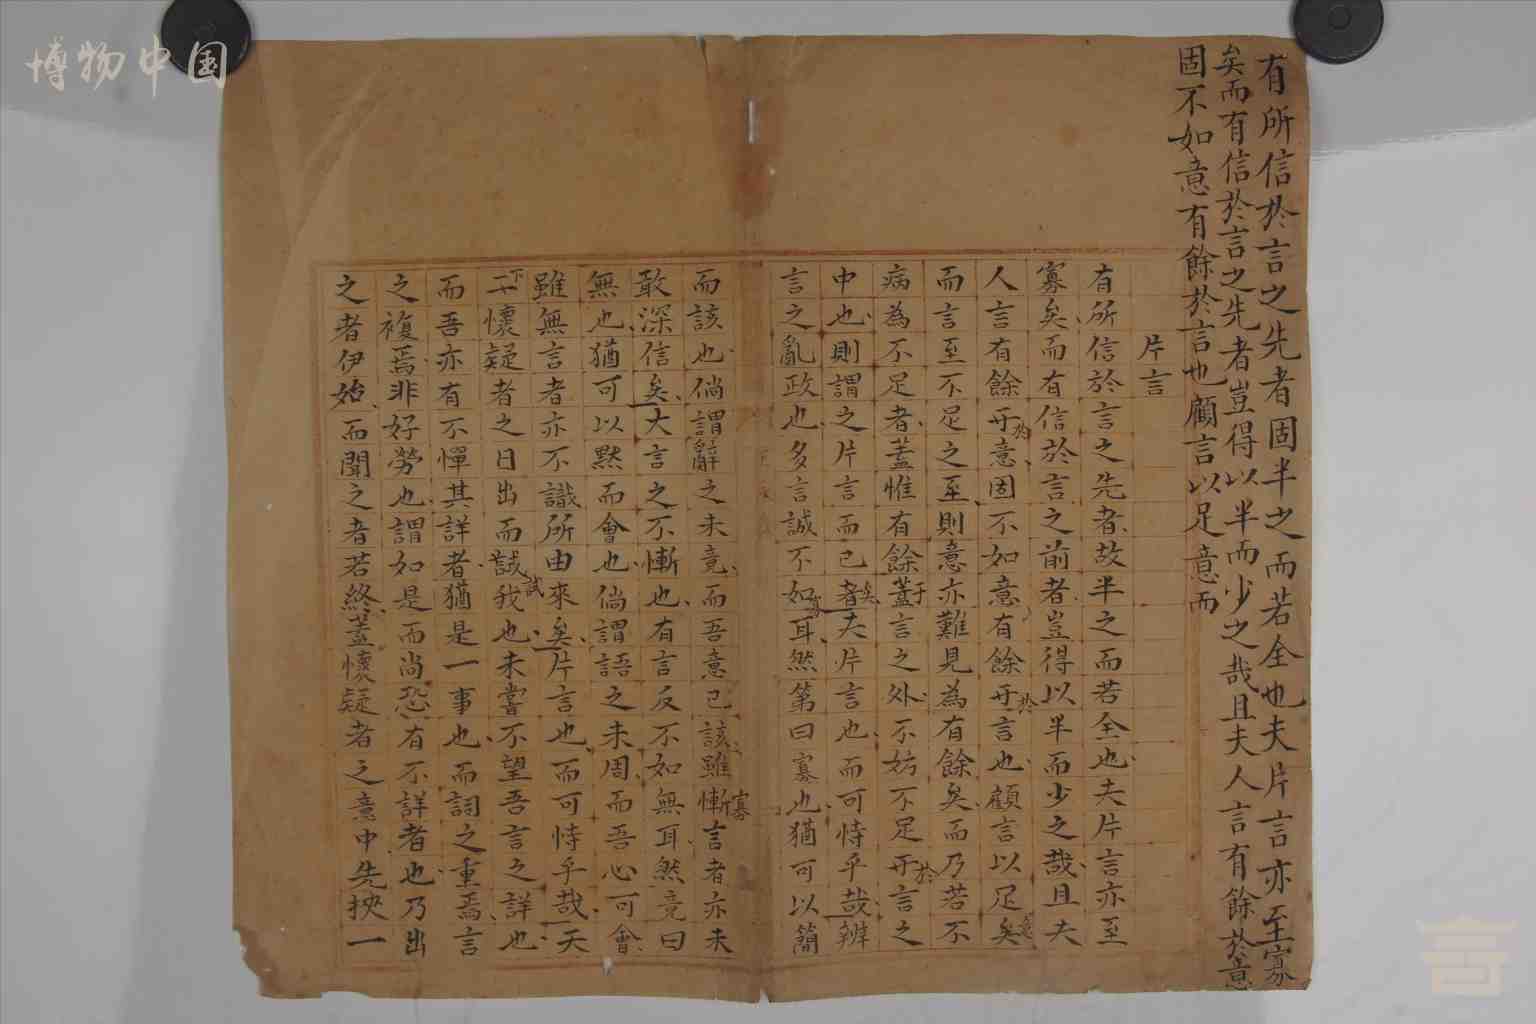 博物中国
有所信於言之先者固半之而若全也夫片言亦至寡
矣而有信於言之先者豈得以半而少之哉且夫人言有餘於意
固不如意有餘於言也顧言以足意而
片言
有所信於言之先者故半之而若全也夫片言亦至
寡矣而有信於言之前者豈得以半而少之哉且夫
人言有餘於意固不如意有餘於言也顧言以足矣
而言至不足之至則意亦難見為有餘矣而乃若不
病為不足者蓋惟有餘蓋言之外不妨不足於言之
中也則謂之片言而已者夫片言也而可恃乎哉辨
言之亂政也多言誠不如耳然第曰寡也猶可以簡
而該也倘謂辭之未竟而吾意已該雖慚言者亦未
敢深信矣大言之不慚也有言反不如無耳然竟曰
無也猶可以默而會也倘謂語之未周而吾心可會
雖無言者亦不識所由來矣片言也而可恃乎哉天
下懷疑者之日出而試我也未嘗不望吾言之詳也
而吾亦有不憚其詳者猶是一事也而詞之重焉言
之複焉非好勞也謂如是而尚恐有不詳者也乃出
之者伊始而聞之者若終蓋懷疑者之意中先挾一